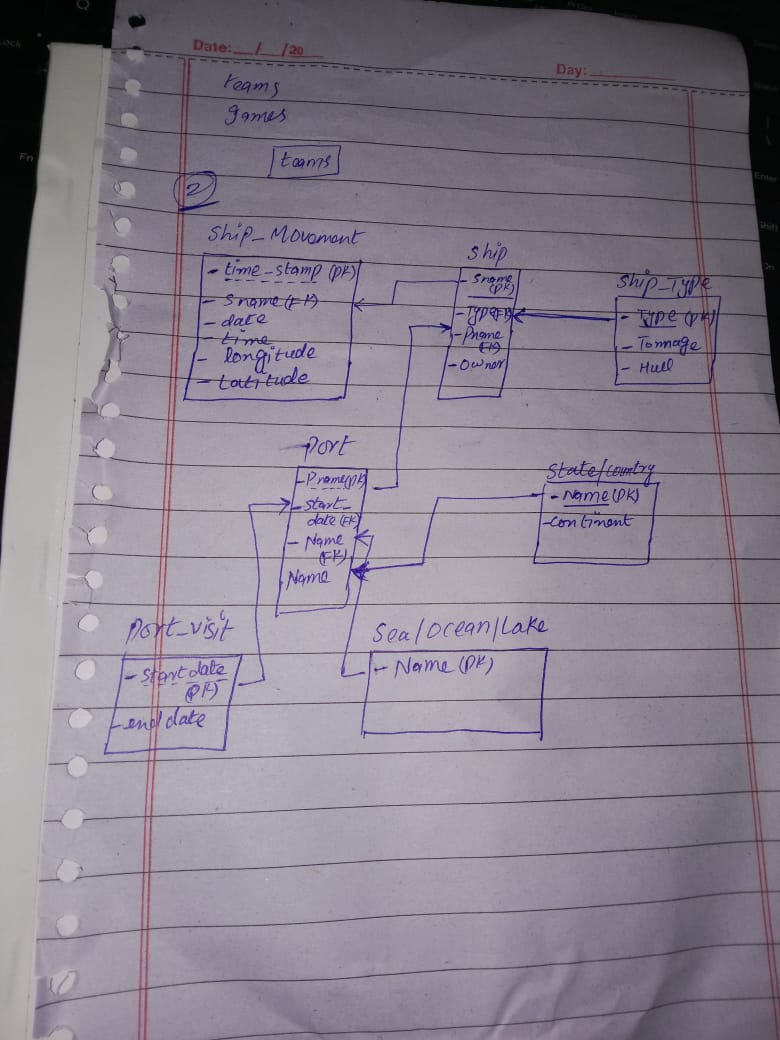 Date: / /20
Day:
teams
games
teams
2
Ship_Movement
- time_stamp (PK)
- Sname (FK)
- date
- time
- longitude
- Latitude
Ship
- Sname
(PK)
- Type (FK)
- Pname
(FK)
- Owner
Ship_Type
- Type (PK)
- Tonnage
- Hull
Port
- Pname (PK)
- Start_
date (FK)
- Name
(FK)
Name
State/country
- Name (PK)
- continent
Port_visit
- Start date
(PK)
- end date
Sea/Ocean/Lake
- Name (PK)
Fn
Enter